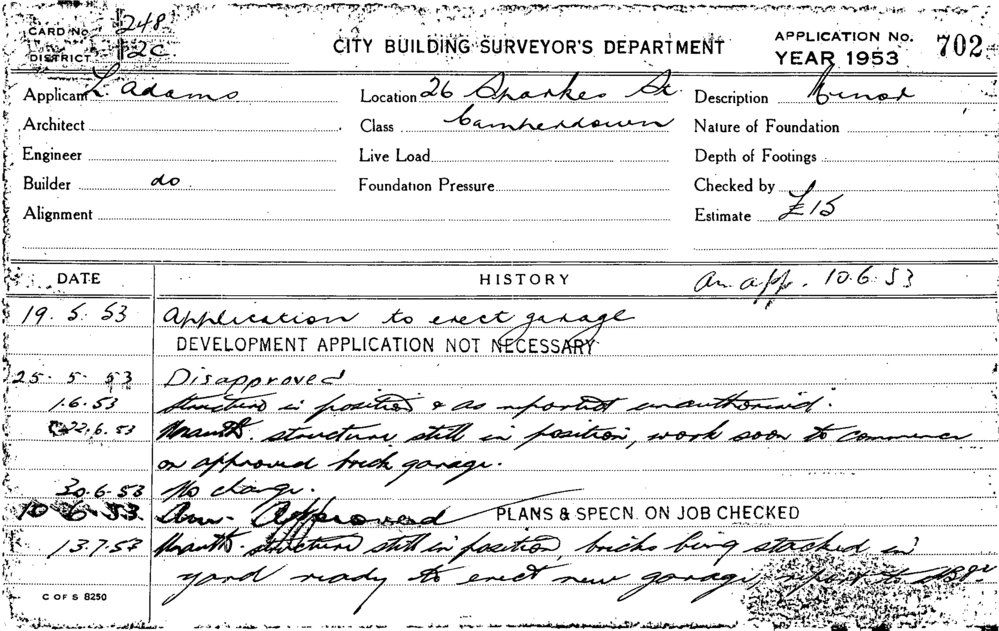 CARD No. 248
DISTRICT 2C
CITY BUILDING SURVEYOR'S DEPARTMENT
APPLICATION No. 702
YEAR 1953
Applicant L Adams
Location 26 Sparkes St.
Description Minor
Architect
Class Camperdown
Nature of Foundation
Engineer
Live Load
Depth of Footings
Builder do.
Foundation Pressure
Checked by
Alignment
Estimate £15
DATE
HISTORY
Am. app. 10.6.53
19.5.53 Application to erect garage
DEVELOPMENT APPLICATION NOT NECESSARY
25.5.53 Disapproved
1.6.53 Structure in position & as reported unauthorised.
22.6.53 Unauth. structure still in position, work soon to commence
on approved brick garage.
30.6.53 No change.
10.6.53. Am. Approved PLANS & SPECN. ON JOB CHECKED
13.7.53 Unauth. structure still in position, bricks being stacked in
yard ready to erect new garage, report to
C OF S 8250